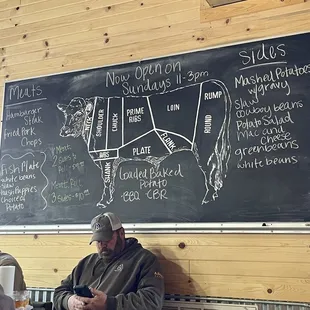 Now Open on
Sundays 11-3pm
Meats
Hamburger
Steak
Fried Pork
Chops
Fish Plate
white beans
Slaw
Hush Puppies
Choice of
Potato
1 Meat
2 Sides
Meat
3 Sides
NECK
SHOULDER
CHUCK
PRIME
RIBS
LOIN
RUMP
ROUND
FLANK
PLATE
RIBS
SHANK
Loaded Baked
Potato
BBQ CBR
Sides
Mashed Potatoes
w/gravy
Slaw
Cowboy beans
Potato Salad
Mac and
Cheese
greenbeans
white beans